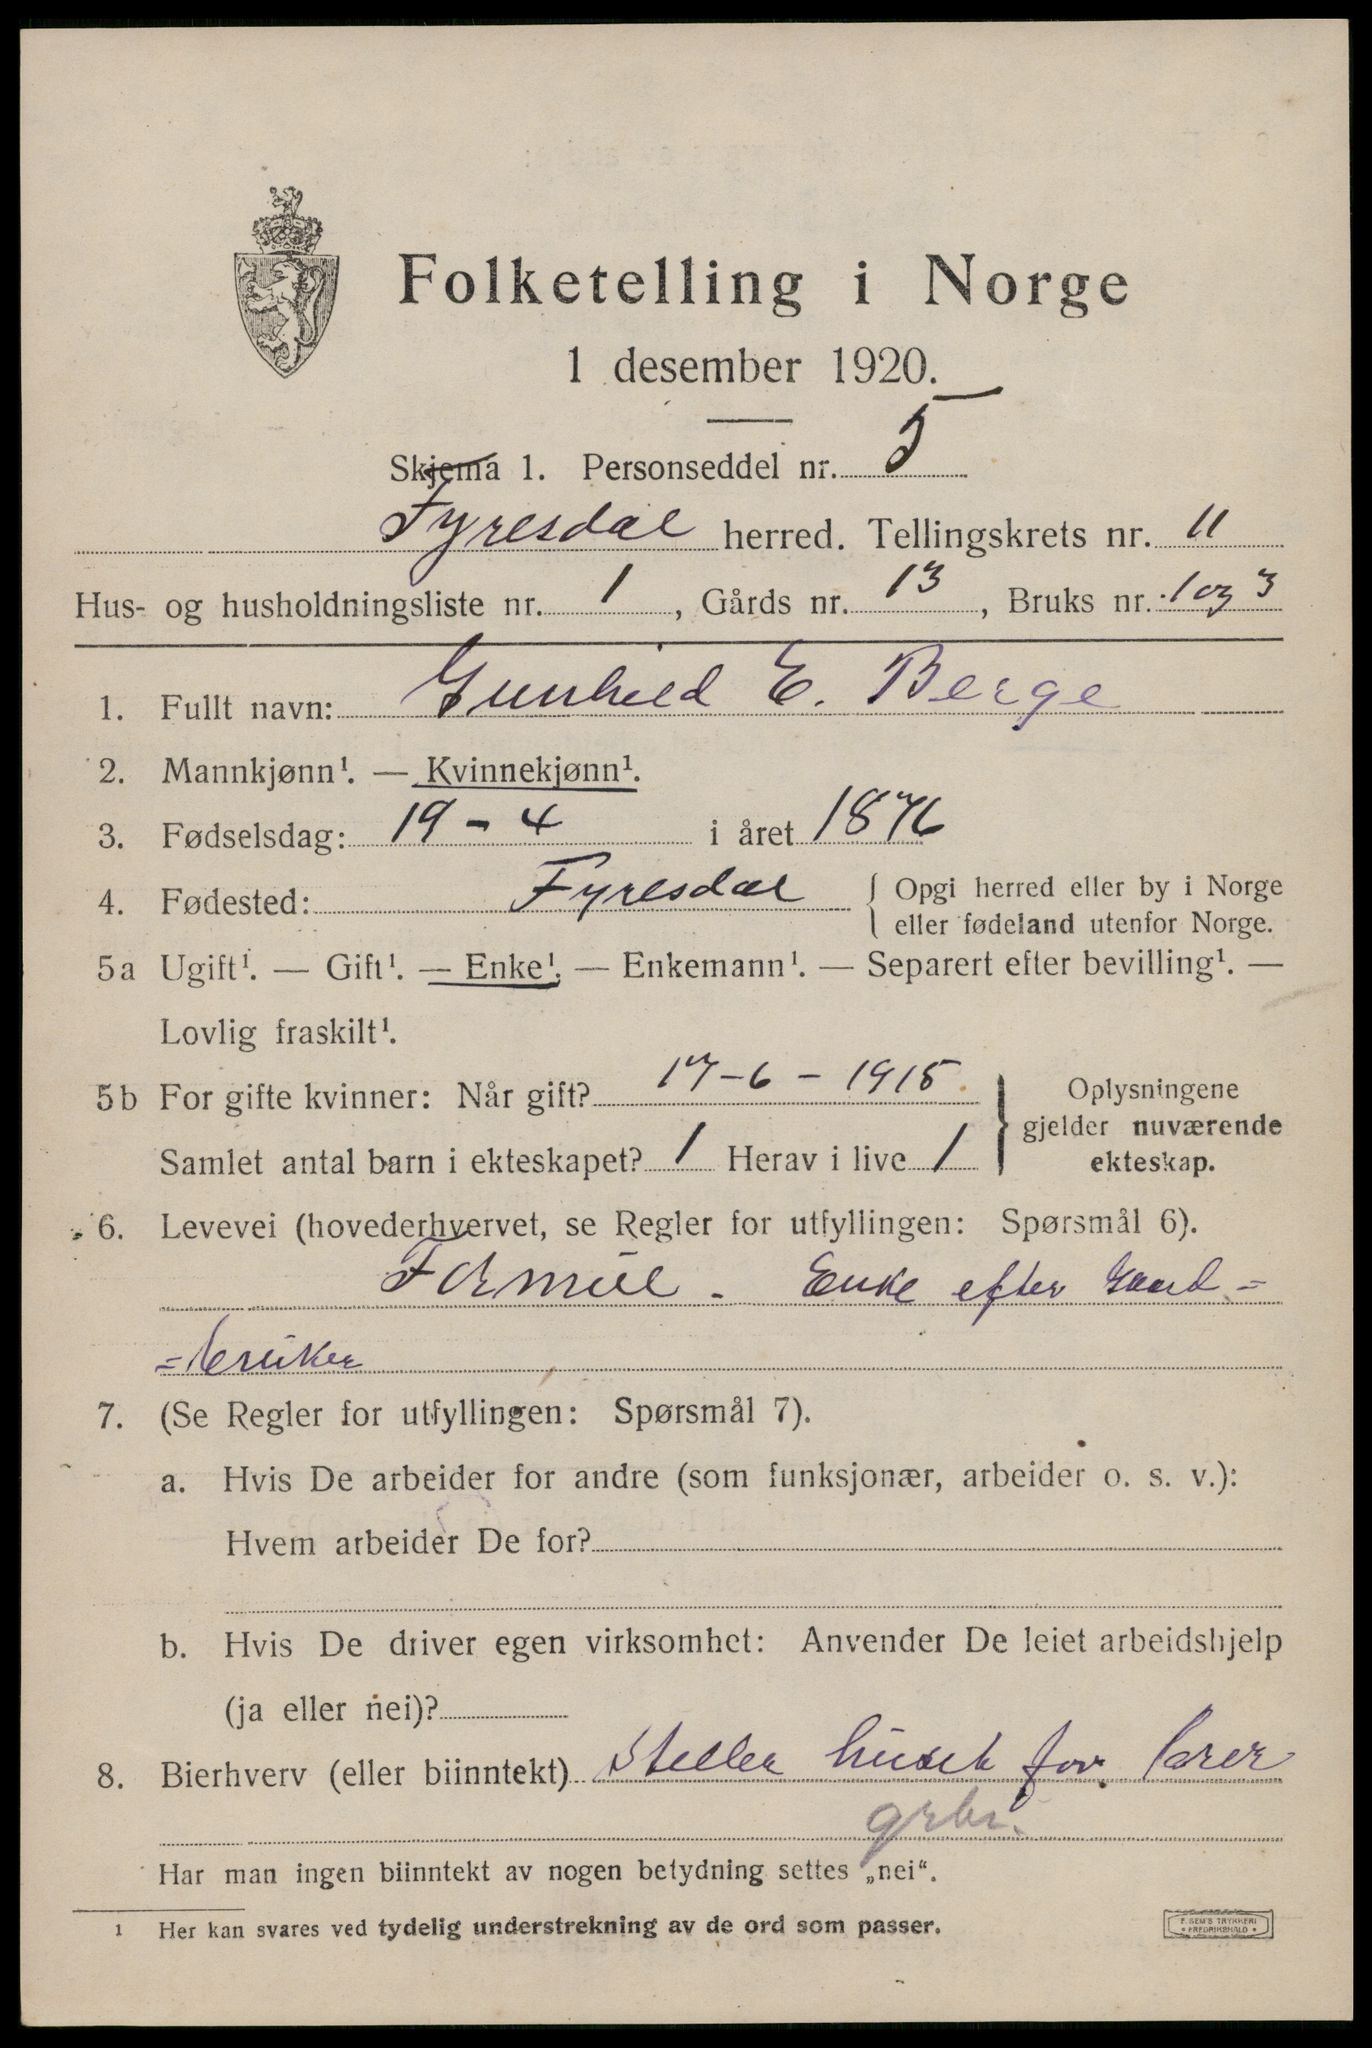 Folketelling i Norge
1 desember 1920.
Skjema 1. Personseddel nr. 5
Fyresdal herred. Tellingskrets nr. 11
Hus- og husholdningsliste nr. 1, Gårds nr. 13, Bruks nr. 1 og 3
1. Fullt navn: Gunhild E. Berge
2. Mannkjønn¹. — Kvinnekjønn¹.
3. Fødselsdag: 19 - 4 i året 1876
4. Fødested: Fyresdal { Opgi herred eller by i Norge
eller fødeland utenfor Norge.
5a Ugift¹. — Gift¹. — Enke¹. — Enkemann¹. — Separert efter bevilling¹. —
Lovlig fraskilt¹.
5b For gifte kvinner: Når gift? 17-6-1915. } Oplysningene
gjelder nuværende
Samlet antal barn i ekteskapet? 1 Herav i live 1
ekteskap.
6. Levevei (hovederhvervet, se Regler for utfyllingen: Spørsmål 6).
Formue. Enke efter Gaard=
=bruker
7. (Se Regler for utfyllingen: Spørsmål 7).
a. Hvis De arbeider for andre (som funksjonær, arbeider o. s. v.):
Hvem arbeider De for?
b. Hvis De driver egen virksomhet: Anvender De leiet arbeidshjelp
(ja eller nei)?
8. Bierhverv (eller biinntekt) Steller huset for
grbr.
Har man ingen biinntekt av nogen betydning settes „nei“.
¹ Her kan svares ved tydelig understrekning av de ord som passer.
F. SEM'S TRYKKERI
* FREDRIKSHALD *